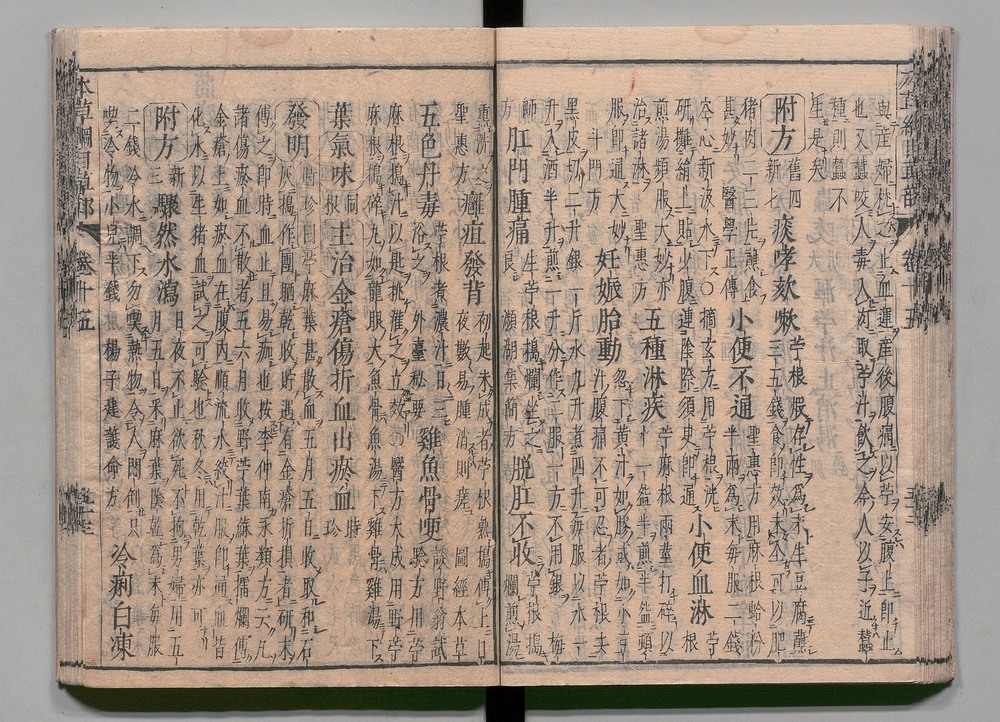 與產婦枕之止血暈產後腹痛以苧安腹上即止
也又蠶咬人毒入肉取苧汁飲之今人以苧近蠶
種則蠶不
生是矣
附方 舊四新七 痰哮欬嗽 苧根服存性為末生豆腐蘸三五錢食即效未全可以肥
猪肉二三片蘸食甚妙 醫學正傳 小便不通 聖惠方用麻根蛤粉半兩為末每服二錢
空心新汲水下〇摘玄方用苧根洗研攤絹上貼少腹連陰際須臾即通 小便血淋 苧根
煎湯頻服大妙亦治諸淋 聖惠方 五種淋疾 苧麻根兩莖打碎以水一盌半煎半盌頓
服即通大妙 斗門方 妊娠胎動 忽下黃汁如膠或如小豆汁腹痛不可忍者苧根去
黑皮切二升銀一斤水九升煮四升每服以水一升入酒半升煎一升分二服一方不用銀 梅
師方 肛門腫痛 生苧根搗爛坐之良 瀕湖集簡方 脫肛不收 苧根搗爛煎湯
熏洗之 聖惠方 癰疽發背 初起未成者苧根熟搗傅上日夜數易腫消則瘥 圖經本草
五色丹毒 苧根煮濃汁日三浴之 外臺秘要 雞魚骨哽 談野翁試驗方用野苧
麻根搗汁以匙挑灌之立效〇醫方大成用野苧麻根搗碎丸如龍眼大魚骨魚湯下雞骨雞湯下
葉氣味 同根 主治金瘡傷折血出瘀血 時珍
發明 時珍曰苧麻葉甚散血五月五日收取和石灰搗作團晒乾收貯遇有金瘡折損者研末
傅之即時血止且易痂也按李仲南永類方云凡諸傷瘀血不散者五六月收野苧葉蘇葉擂爛傅
金瘡上如瘀血在腹內順流水絞汁服即通血皆化水以生猪血試之可驗也秋冬用乾葉亦可
附方 新三 驟然水瀉 日夜不止欲死不拘男婦用五月五日采麻葉陰乾為末每服
二錢冷水調下勿喫熱物令人悶倒只喫冷物小兒半錢 楊子建護命方 冷痢白凍
本草綱目草部 卷十五